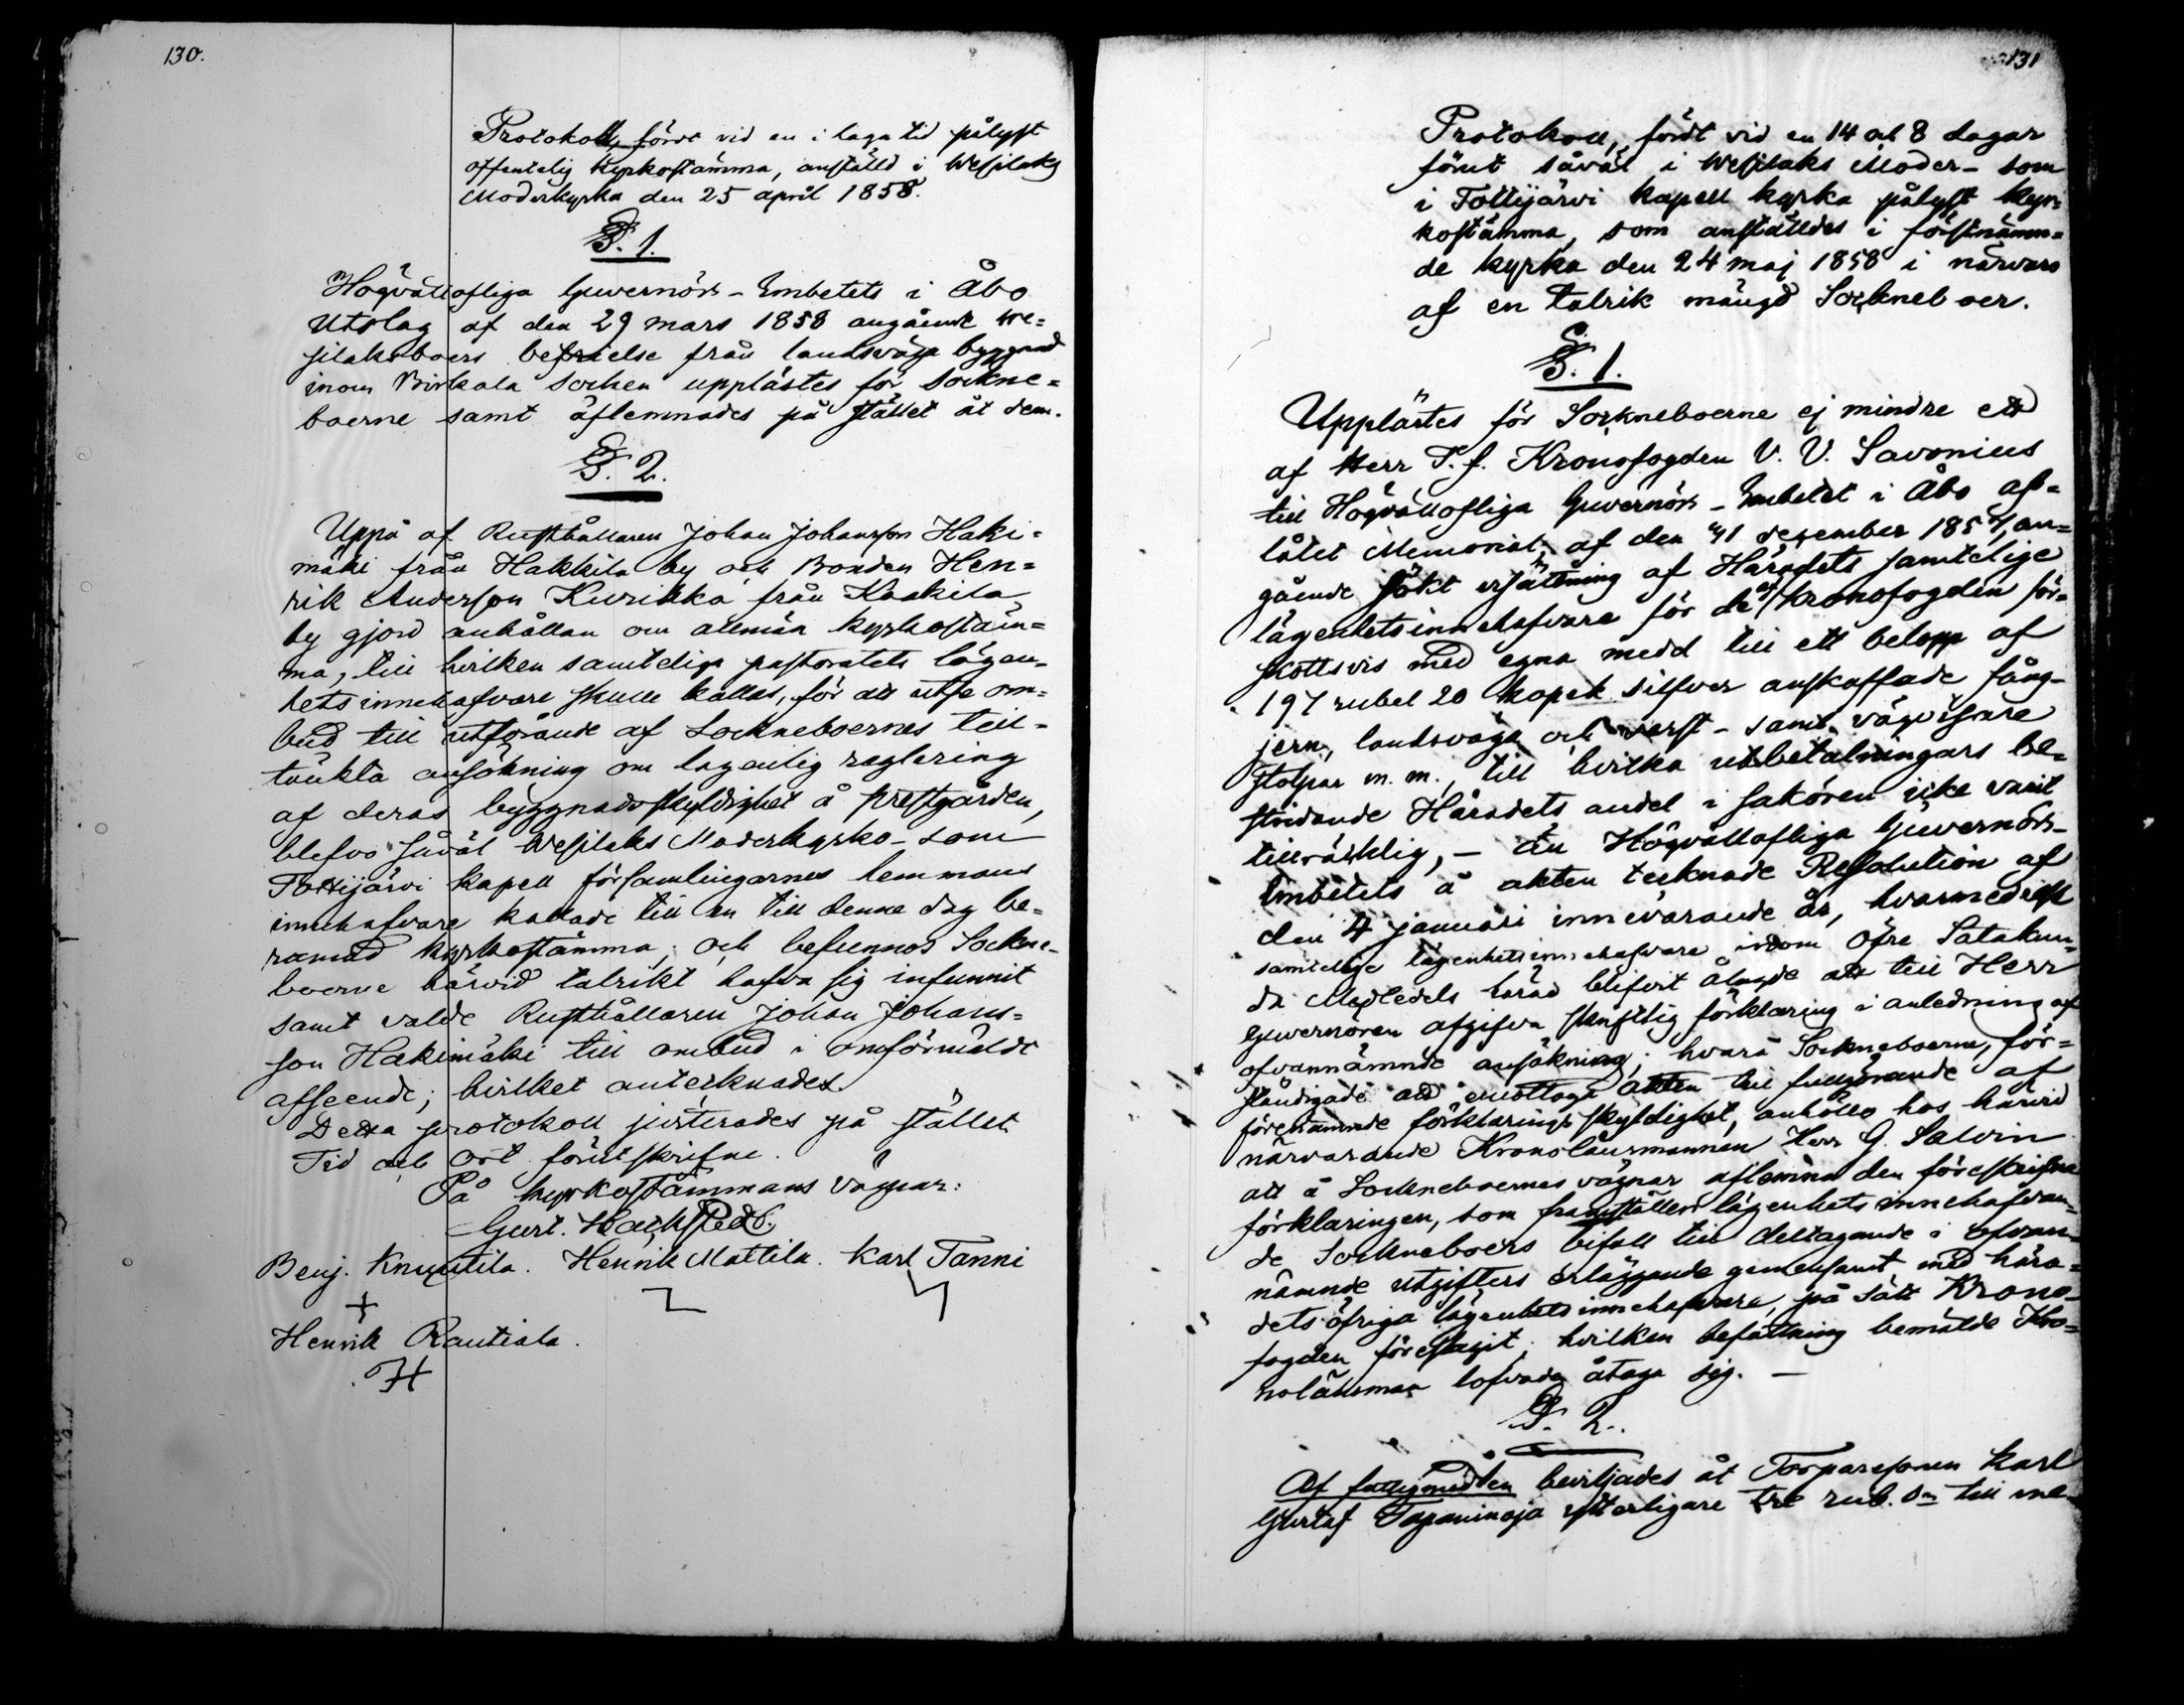 130.
Protokoll, fördt vid en i laga tid pålyst
offentelig Kyrkostämma, anstäld i Wesilaks
Moderkyrka den 25 april 1858.
§. 1.
Högvällofliga Guvernörs-Embetets i Åbo
Utslag af den 29 mars 1858 angående We=
silaksboers befrielse från landsvägs byggnad
inom Birkala socken upplästes för sockne=
boerne samt aflemnades på stället åt dem.
§. 2.
Uppå af Rusthållaren Johan Johansson Haki=
mäki från Hakkila by och Bonden Hen=
rik Andersson Kurikka från Kaakila
by gjord anhållan om allmän kyrkostäm=
ma, till hvilken samtelige pastoratets lägen=
hets innehafvare skulle kallas, för att utse om=
bud till utförande af Sockneboernes till=
tänkta ansökning om lagenlig reglering
af deras byggnadsskyldighet å prestgården,
blefvo såväl Wesilaks Moderkyrko- som
Tottijärvi kapell församlingarnes hemmans
innehafvare kallade till en till denne dag be=
ramad kyrkostämma, och befunnos Sockne-
boerne härvid talrikt hafva sig infunnit
samt valde Rusthållaren Johan Johans=
son Hakimäki till ombud i omförmälde
afseende; hvilket antecknades.
Detta protokoll justerades på stället
Tid och Ort förut skrifne.
På kyrkostämmans vägnar:
Gust. Hachstedt.
Benj. Knuutila. Henrik Mattila. Karl Tanni
Henrik Rautiala.
131
Protokoll, fördt vid en 14 och 8 dagar
förut såväl i Wesilaks Moder- som
i Tottijärvi kapell kyrka pålyst kyr=
kostämma, som anstäldes i förstnämn=
de kyrka den 24 maj 1858 i närvaro
af en talrik mängd Sockneboer.
§. 1.
Upplästes för Sockneboerne ej mindre ett
af Herr T. f. Kronofogden V. V. Savonius
till Högvällofliga Guvernörs-Embetet i Åbo af=
låtet Memorial, af den 31 december 1857, an=
gående sökt ersättning af Häradets samtelige
lägenhetsinnehafvare för de af Kronofogden för=
skottsvis med egna medel till ett belopp af
197 rubel 20 kopek silfver anskaffade fång-
jern, landsvägs och verst- samt vägvisare
stolpar m. m., till hvilka utbetalningars be=
stridande Häradets andel i sakören icke varit
tillräcklig, — än Högvällofliga Guvernörs-
Embetets å akten tecknade Resolution af
den 4 januari innevarande år, hvarmedelst
samtelige lägenhetsinnehafvare inom Öfre Satakun=
da Medledels härad blifvit ålagde att till Herr
Guvernören afgifva skriftlig förklaring i anledning af
ofvannämnde ansökning; hvarå Sockneboerne, för=
ständigade att emottaga akten till fullgörande af
förenämnde förklarings skyldighet, anhöllo hos härvid
närvarande Kronolänsmannen Herr G. Salvin
att å Sockneboernes vägnar aflemna den föreskrifna
förklaringen, som framställer lägenhets innehafvan=
de Sockneboers bifall till deltagande i ofvan=
nämnde utgifters erläggande gemensamt med hära=
dets öfriga lägenhetsinnehafvare, på sätt Krono-
fogden föreslagit; hvilken befattning bemälde Kro=
nolänsman lofvade åtaga sig. —
§. 2.
Af fattigmedlen beviljades åt Torparesonen Karl
Gustaf Tapaninoja ytterligare tre rub. Sr till me-